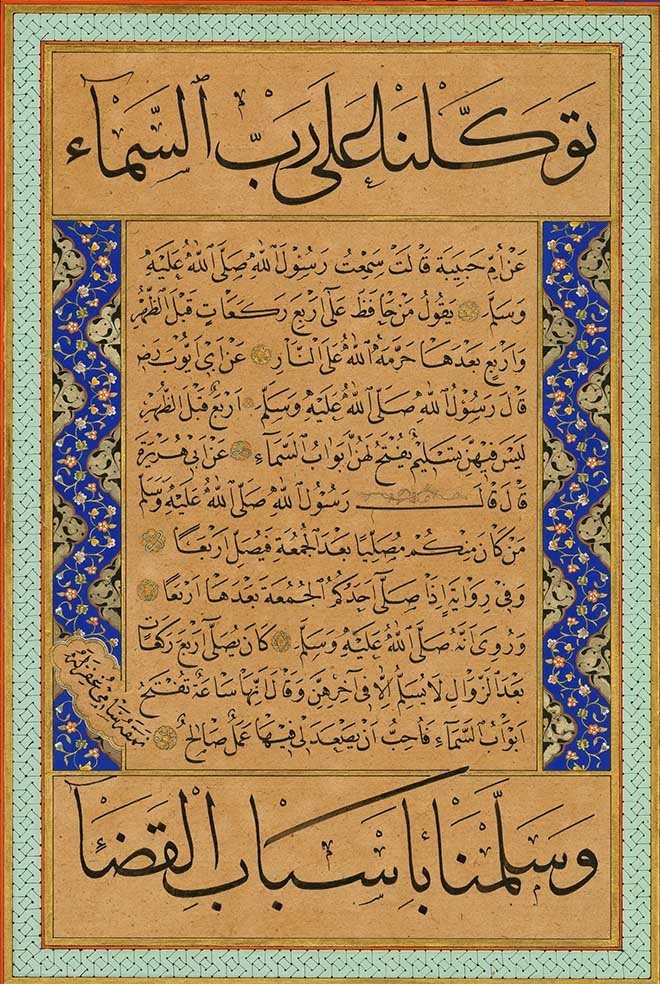 توكلنا على رب السماء
عن ام حبيبة قالت سمعت رسول الله صلى الله عليه
وسلم يقول من حافظ على اربع ركعات قبل الظهر
واربع بعدها حرمه الله على النار عن ابي ايوب رض
قال رسول الله صلى الله عليه وسلم اربع قبل الظهر
ليس فيهن تسليم يفتح لهن ابواب السماء عن ابي هريرة
قال قال رسول الله صلى الله عليه وسلم
من كان منكم مصليا بعد الجمعة فيصل اربعا
وفي رواية إذا صلى احدكم الجمعة بعدها اربعا
وروي انه صلى الله عليه وسلم كان يصلي اربع ركعات
بعد الزوال لا يسلم الا في آخرهن وقال إنها ساعة تفتح
ابواب السماء فأحب ان يصعد لي فيها عمل صالح
وسلمنا بأسباب القضاء